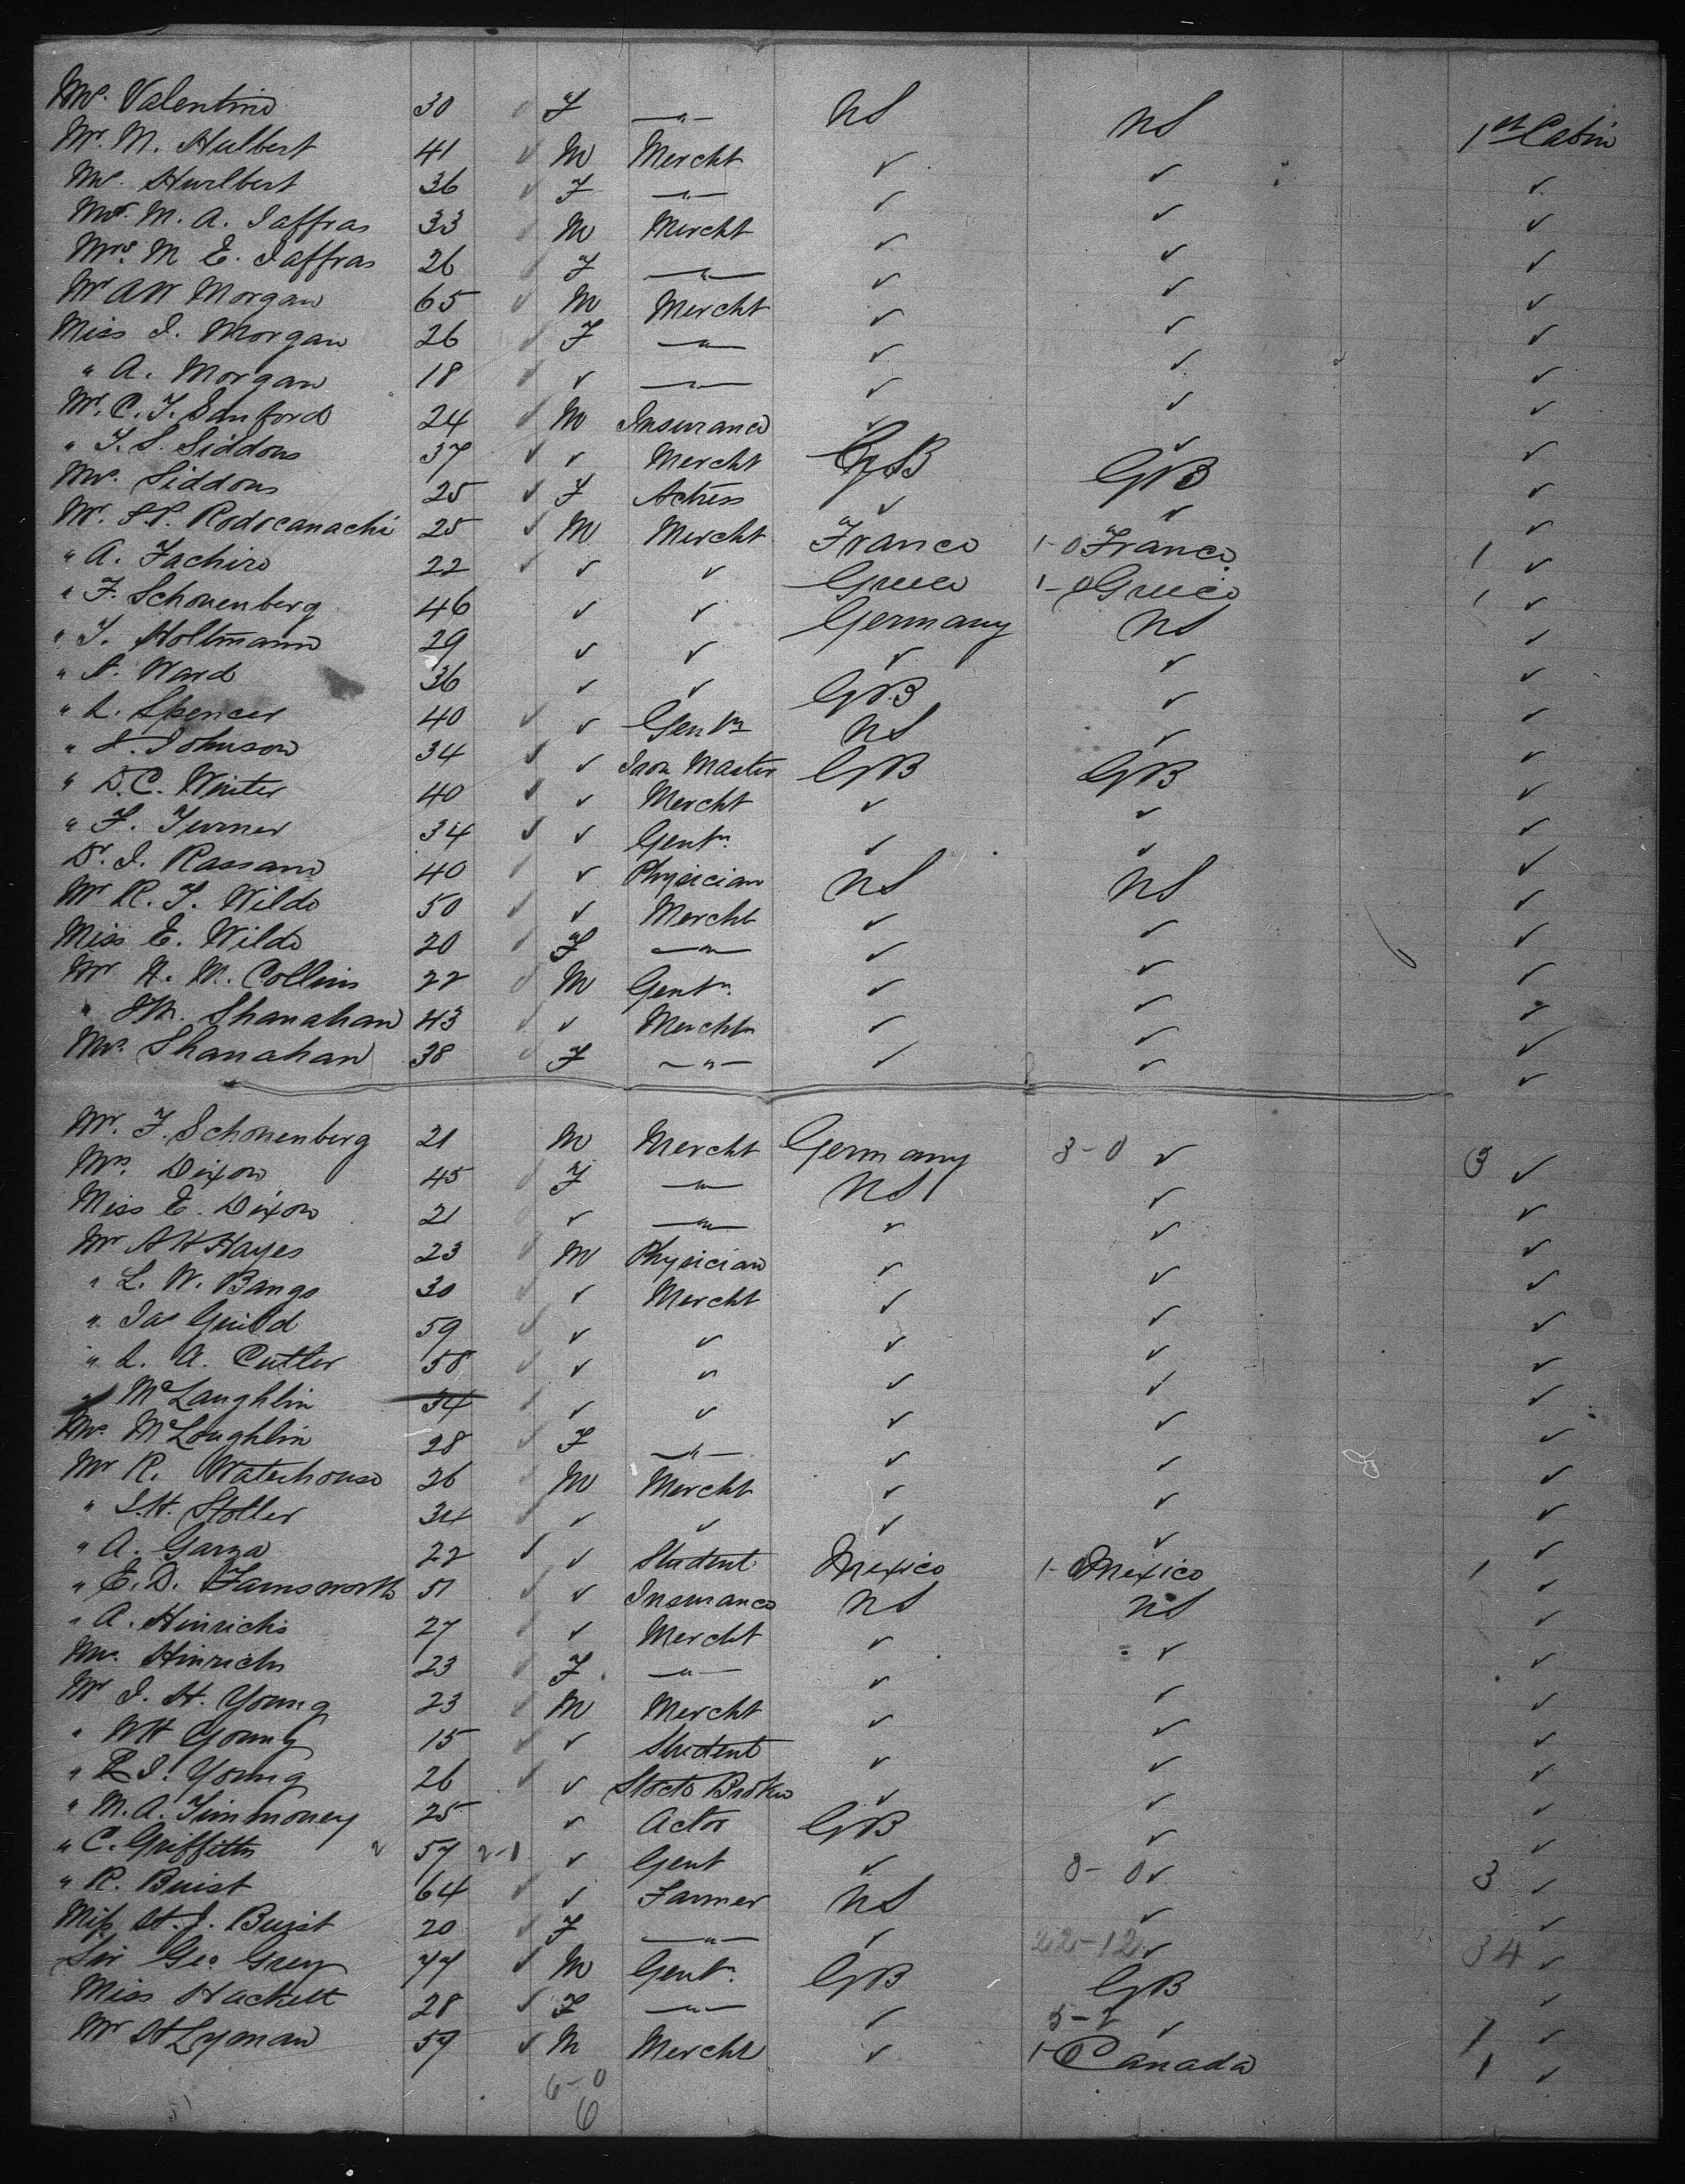 Mrs. Valentine 30 F —"— US US 1st Cabin
Mr. M. Hulbert 41 ✓ M Mercht ✓ ✓ ✓
Mrs. Hurlbert 36 ✓ F —"— ✓ ✓ ✓
Mr. M. A. Jaffras 33 M Mercht ✓ ✓ ✓
Mrs. M E. Jaffras 26 F —"— ✓ ✓ ✓
Mr AW Morgan 65 ✓ M Mercht ✓ ✓ ✓
Miss J. Morgan 26 F —"— ✓ ✓ ✓
" A. Morgan 18 ✓ —"— ✓ ✓ ✓
Mr. C. T. Sanford 24 M Insurance ✓ ✓ ✓
" T. S. Siddons 37 ✓ ✓ Mercht GB GB ✓
Mrs. Siddons 25 ✓ F Actress ✓ ✓ ✓
Mr. S.P. Rodocanachi 25 ✓ M Mercht France 1-0 France 1 ✓
" A. Fachiro 22 ✓ ✓ Greece 1-0 Greece 1 ✓
" F. Schonenberg 46 ✓ ✓ Germany US ✓
" T. Holtmann 29 ✓ ✓ ✓ ✓ ✓
" A. Ward 36 ✓ ✓ GB ✓ ✓
" L. Spencer 40 ✓ ✓ Gentn US ✓ ✓
" S. Johnson 34 ✓ ✓ Iron Master GB GB ✓
" D. C. Winter 40 ✓ ✓ Mercht ✓ ✓ ✓
" F. Turner 34 ✓ ✓ Gentn. ✓ ✓ ✓
Dr. J. Rassam 40 ✓ Physician US US ✓
Mr R. T. Wilde 50 ✓ ✓ Mercht ✓ ✓ ✓
Miss E. Wilde 20 F —"— ✓ ✓ ✓
Mr A. W. Collins 22 M Gentn. ✓ ✓ ✓
" Shanahan 43 ✓ ✓ Mercht ✓ ✓ ✓
Mrs. Shanahan 38 F —"— ✓ ✓ ✓
Mr. F. Schonenberg 21 M Mercht Germany 3-0 ✓ 3 ✓
Mrs. Dixon 45 F —"— US ✓ ✓
Miss E. Dixon 21 ✓ —"— ✓ ✓ ✓
Mr A H Hayes 23 M Physician ✓ ✓ ✓
" L. W. Bangs 30 ✓ ✓ Mercht ✓ ✓ ✓
" Jas Guild 59 ✓ ✓ ✓ ✓ ✓ ✓
" L. A. Cutler 58 ✓ ✓ ✓ ✓ ✓ ✓
" McLaughlin 34 ✓ ✓ ✓ ✓ ✓ ✓
Mrs. McLoughlin 28 ✓ F —"— ✓ ✓ ✓
Mr R. Waterhouse 26 M Mercht ✓ ✓ ✓
" S. H. Stoller 34 ✓ ✓ ✓ ✓ ✓ ✓
" A. Garza 22 ✓ ✓ Student Mexico 1-0 Mexico 1 ✓
" E. D. Farnsworth 51 ✓ ✓ Insurance US US ✓
" A. Hinrichs 27 ✓ ✓ Mercht ✓ ✓ ✓
Mrs. Hinrichs 23 ✓ F —"— ✓ ✓ ✓
Mr J. H. Young 23 ✓ M Mercht ✓ ✓ ✓
" WH Young 15 ✓ ✓ Student ✓ ✓ ✓
" J. Young 26 ✓ ✓ Stock Broker ✓ ✓ ✓
" M. A. Timmoney 25 ✓ Actor GB ✓ ✓
" C. Griffitts 57 ✓ Gent ✓ 3-0 ✓ 3 ✓
" R. Buist 64 ✓ ✓ Farmer US ✓ ✓
Miss H. J. Buist 20 ✓ F —"— ✓ 22-12 ✓ 34 ✓
Sir Geo Grey 77 ✓ M Gentn. GB GB ✓
Miss Hackett 28 ✓ F —"— ✓ ✓ 1 ✓
Mr H Lyman 59 ✓ M Mercht ✓ 1-0 Canada 1 ✓
6-0
6